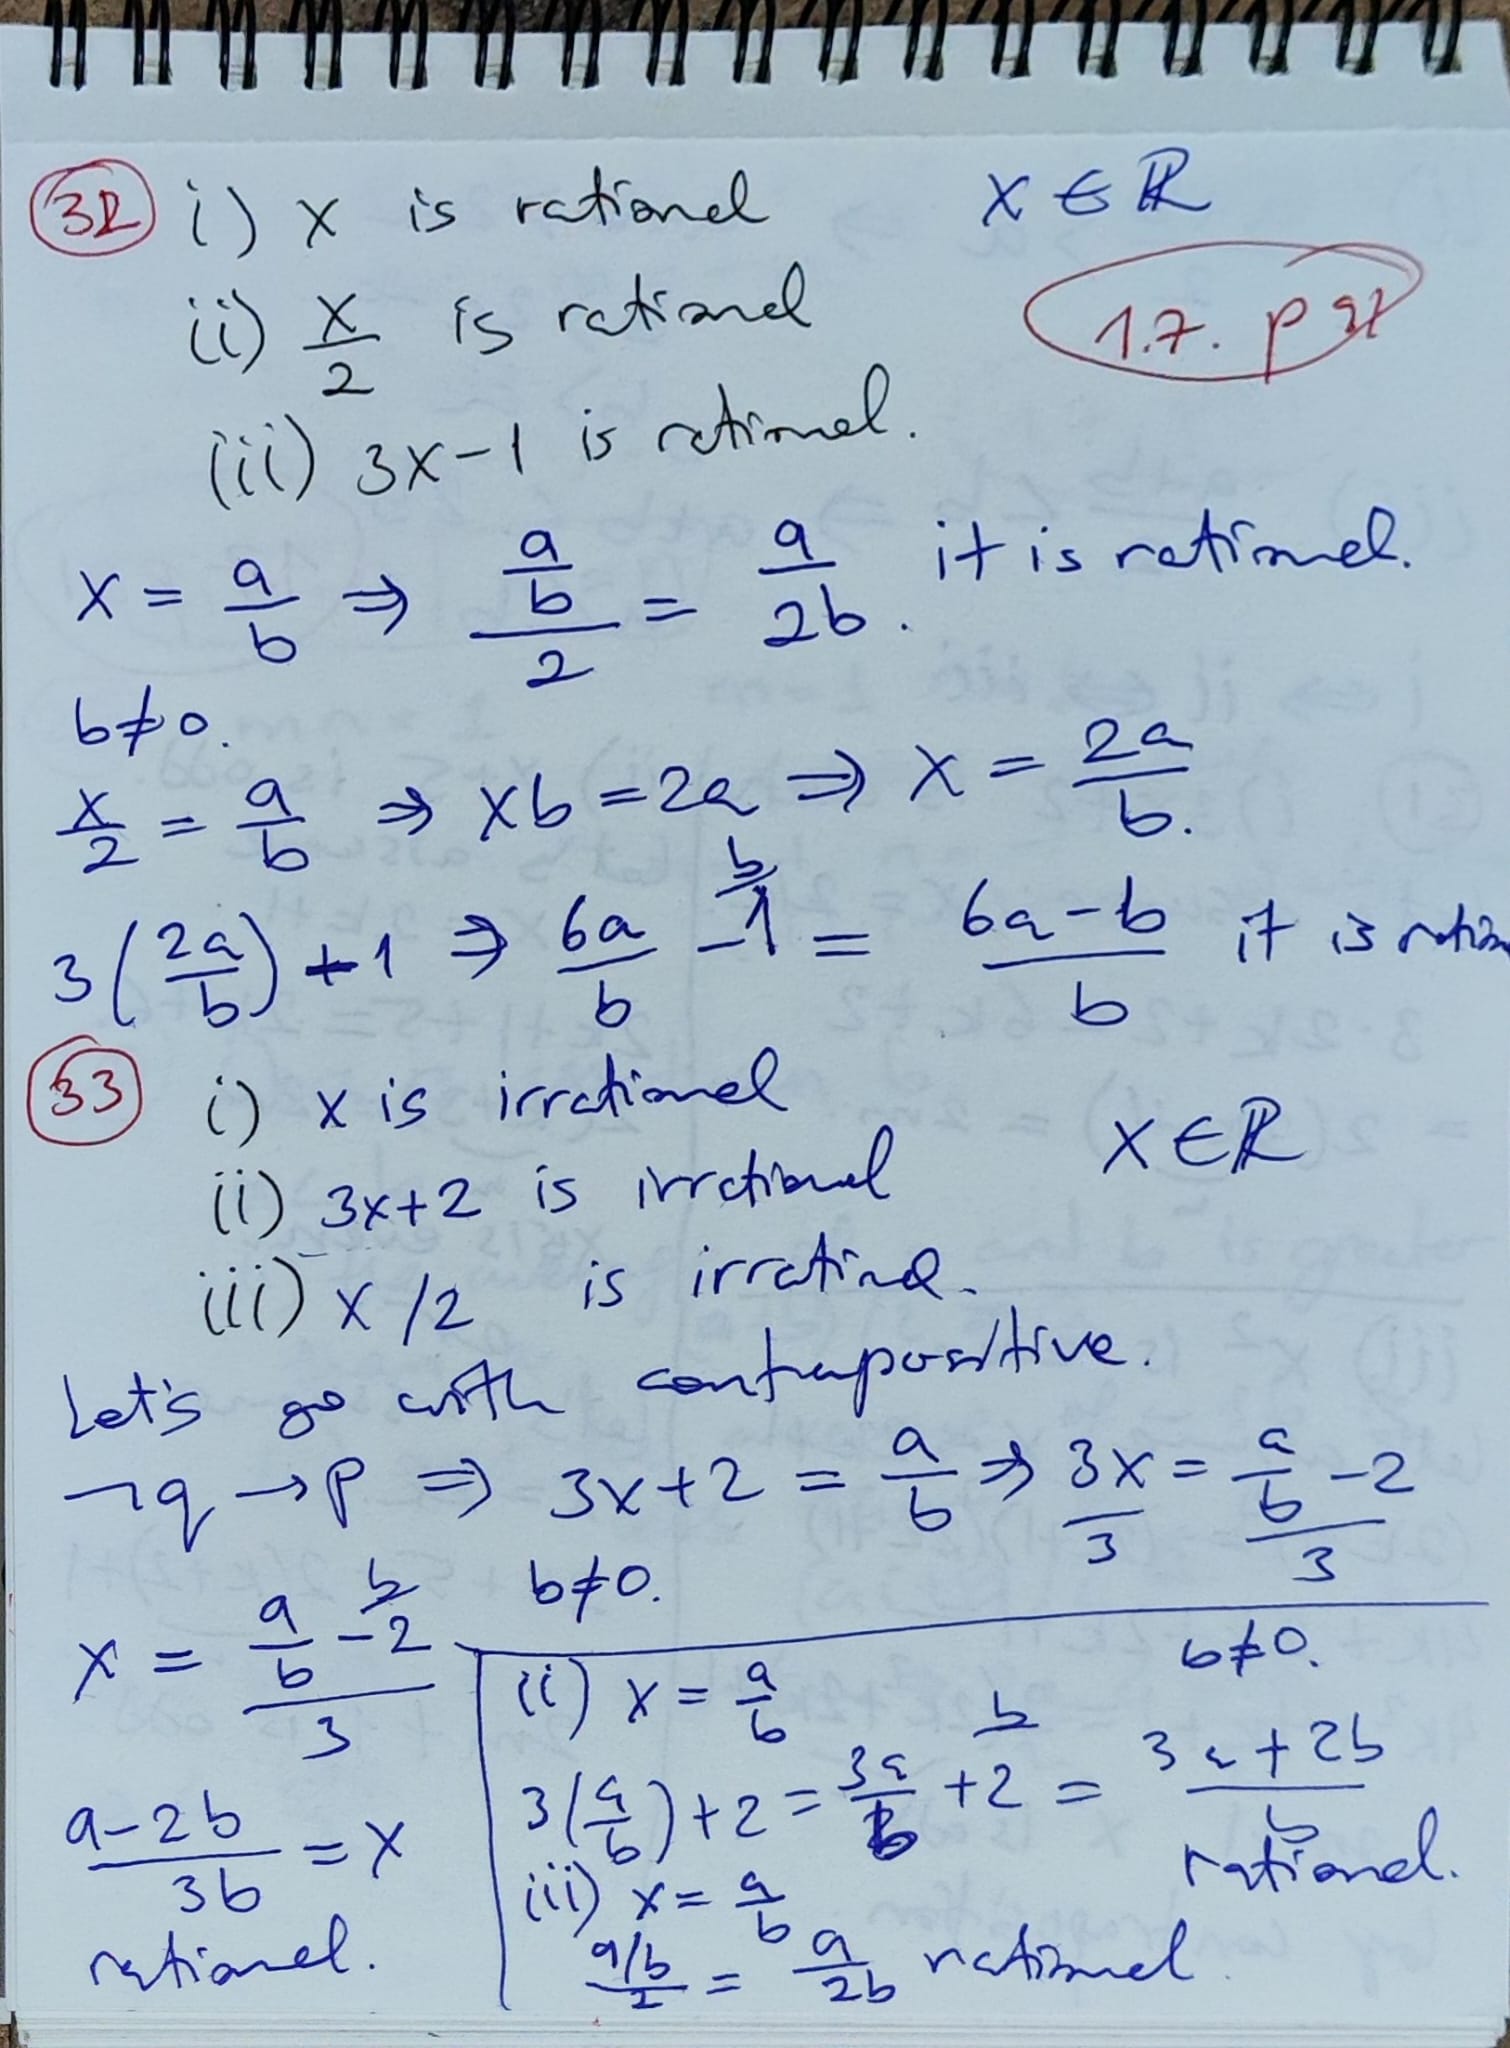 32 i) x is rational x ∈ ℝ
ii) x/2 is rational 1.7. p 91
(iii) 3x-1 is rational.
x = a/b ⇒ (a/b)/2 = a/2b. it is rational.
b≠0.
x/2 = a/b ⇒ xb = 2a ⇒ x = 2a/b.
3(2a/b) + 1 ⇒ 6a/b - 1 b/ = (6a-b)/b it is ration
33 i) x is irrational
x ∈ ℝ
(ii) 3x+2 is irrational
iii) x/2 is irrational.
Let's go with contrapositive.
¬q → p ⇒ 3x+2 = a/b ⇒ 3x/3 = (a/b - 2)/3
b≠0.
x = (a/b - 2 b/)/3
(a-2b)/3b = x
rational.
(ii) x = a/b b≠0.
3(a/b) + 2 = 3a/b + 2 b/ = (3a+2b)/b
rational.
(iii) x = a/b
(a/b)/2 = a/2b rational.